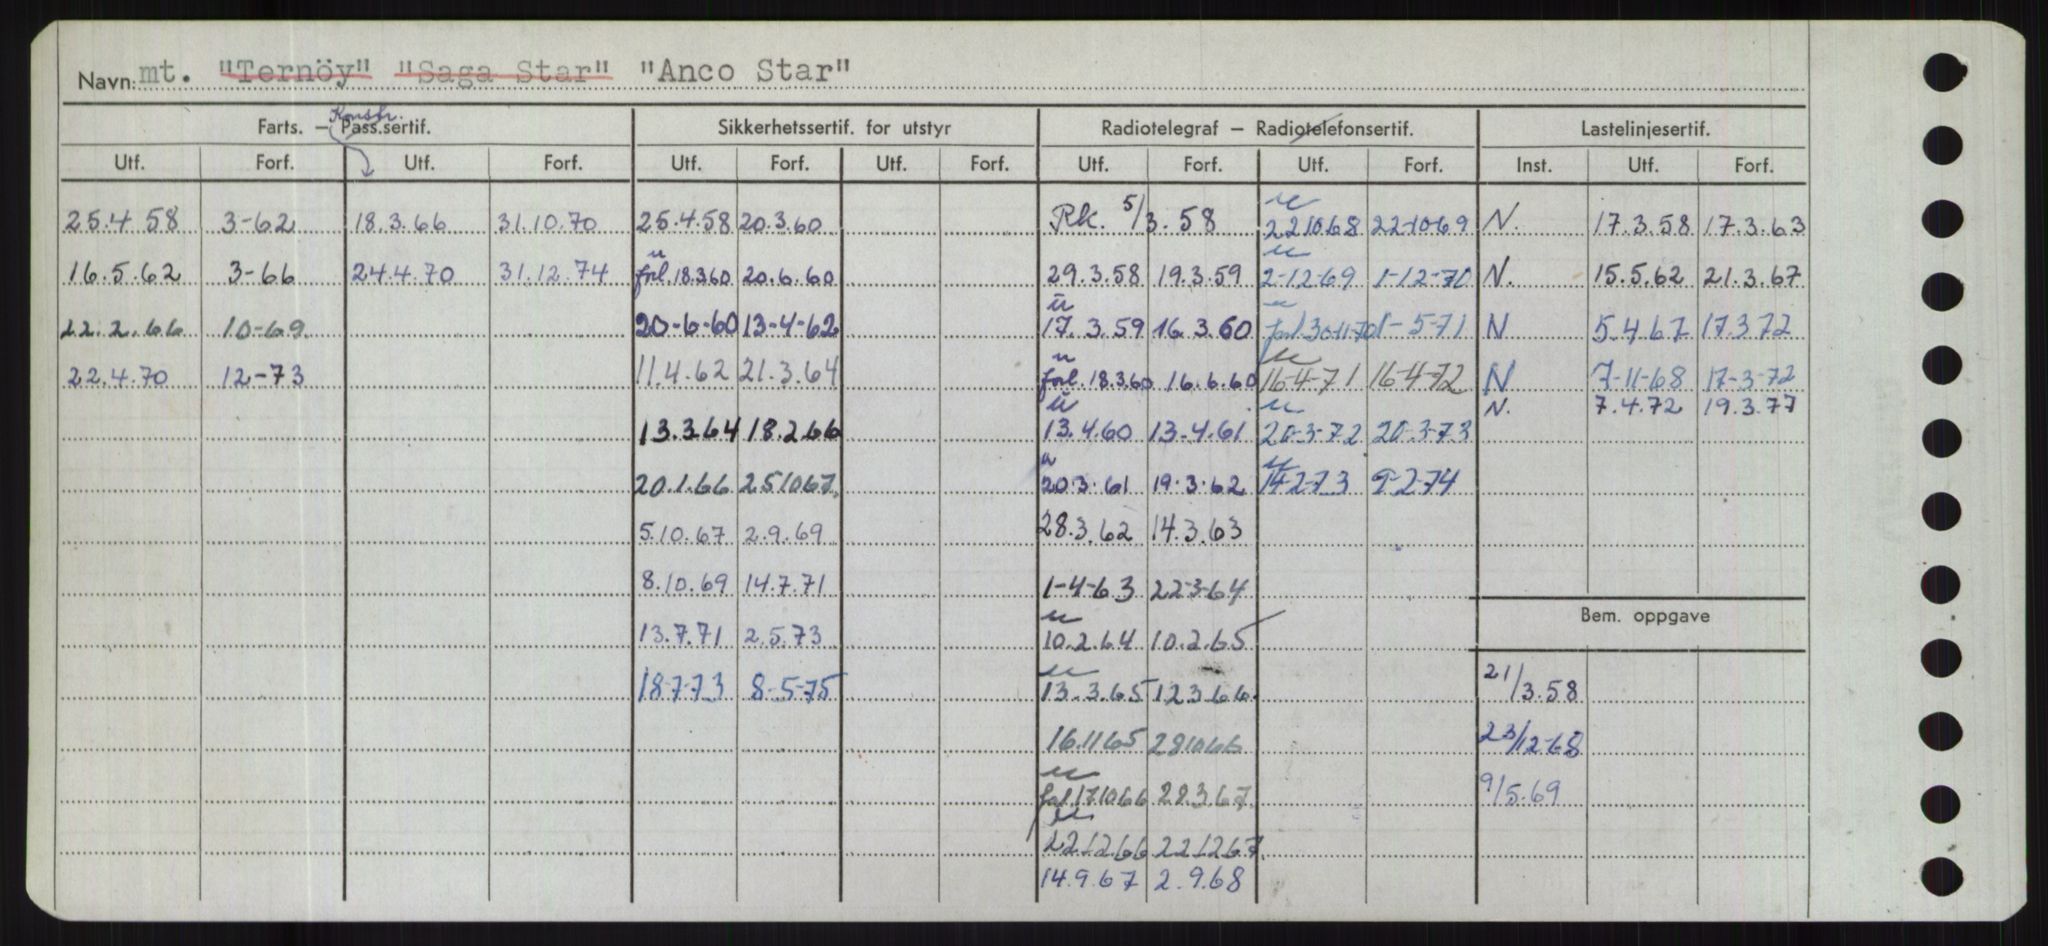 Navn: mt. "Ternöy" "Saga Star" "Anco Star"
Konstr.
Farts. — Pass.sertif. Sikkerhetssertif. for utstyr Radiotelegraf — Radiotelefonsertif. Lastelinjesertif.
Utf. Forf. Utf. Forf. Utf. Forf. Utf. Forf. Utf. Forf. Utf. Forf. Inst. Utf. Forf.
25.4 58 3-62 18.3.66 31.10.70 25.4.58 20.3.60 Rk. 5/3.58 u 22 10 68 22-10-69 N. 17.3.58 17.3.63
16.5.62 3-66 24.4.70 31.12.74 u forl. 18.3 60 20.6.60 29.3.58 19.3.59 u 2-12-69 1-12-70 N. 15.5.62 21.3.67
22.2.66 10-69 20-6-60 13-4-62 u 17.3.59 16.3.60 u forl. 30-11-70 1-5-71 N 5.4.67 17.3 72
22.4.70 12-73 11.4.62 21.3.64 u forl. 18.3 60 16.6.60 u 16-4-71 16-4-72 N 7-11-68 17-3-72
N. 7.4.72 19.3.77
13.3.64 18.2.66 u 13.4.60 13.4.61 u 20-3-72 20-3-73
20.1.66 25 10 67 u 20.3.61 19.3.62 u 14-2-73 9-2-74
5.10.67 2.9.69 28.3.62 14.3.63
8.10.69 14.7.71 1-4-63 22-3-64
Bem. oppgave
13.7.71 2.5.73 u 10.2.64 10.2.65
18-7-73 8-5-75 u 13.3.65 12 3 66 21/3.58
16.11 65 28 10 66 23/12-68
u forl 17 10 66 28.3.67 9/5.69
u 22 12 66 22 12 67
14.9.67 2.9.68